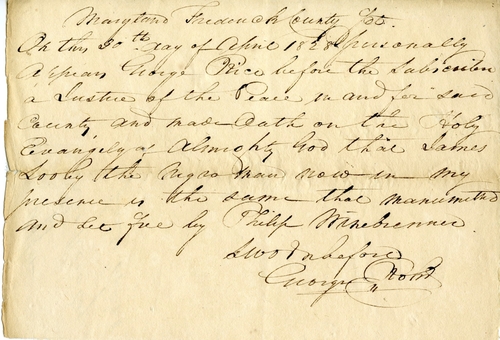 Maryland Frederick County Sct.
On this 30th Day of April 1828 personally
Appears George Price before the Subscriber
a Justice of the Peace in and for said
County, and made Oath on the Holy
Evangely of Almighty God that James
the Negro Man now in my
presence is the same that manumitted
and Set free by Philip Winebrenner
Swo rn before
George